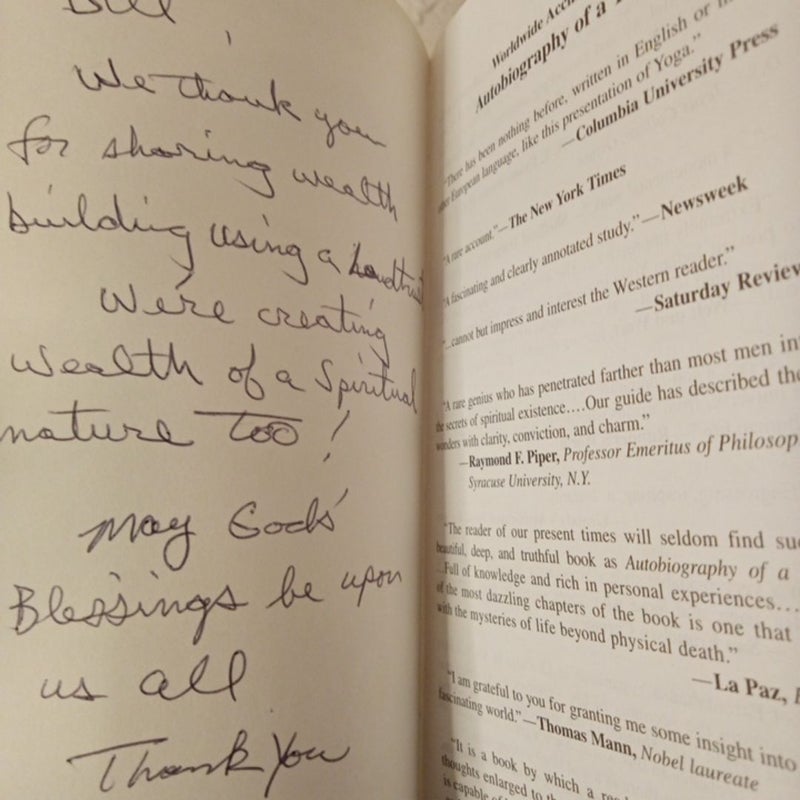 Bill,
We thank you
for sharing wealth
building using a Landtrust
We're creating
wealth of a Spiritual
nature too!
May Gods'
Blessings be upon
us all
Thank You
Worldwide
Autobiography of a
"There has been nothing before, written in English or in
other European language, like this presentation of Yoga."
—Columbia University Press
"A rare account."—The New York Times
"A fascinating and clearly annotated study."—Newsweek
"...cannot but impress and interest the Western reader."
—Saturday Review
"A rare genius who has penetrated farther than most men in
the secrets of spiritual existence....Our guide has described the
wonders with clarity, conviction, and charm."
—Raymond F. Piper, Professor Emeritus of Philosop
Syracuse University, N.Y.
"The reader of our present times will seldom find su
beautiful, deep, and truthful book as Autobiography of a
...Full of knowledge and rich in personal experiences....
of the most dazzling chapters of the book is one that
with the mysteries of life beyond physical death."
—La Paz,
"I am grateful to you for granting me some insight into
fascinating world."—Thomas Mann, Nobel laureate
"It is a book by which a
thoughts enlarged to th
is capable of